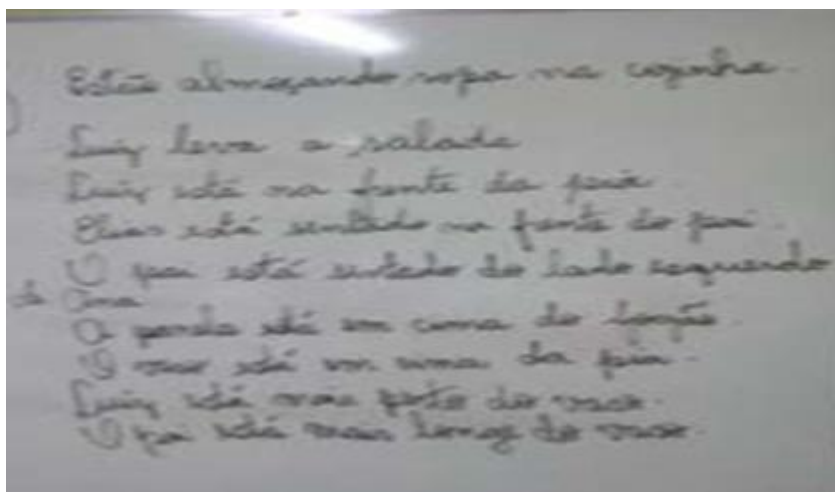 Estão almoçando sopa na cozinha.
Luiz leva a salada
Luiz está na frente da pia.
Elias está sentado na frente do pai.
O pai está sentado do lado esquerdo
da Ana
A panela está em cima do fogão.
O vaso está em cima da pia.
Luiz está mais perto do vaso.
O pai está mais longe do vaso.